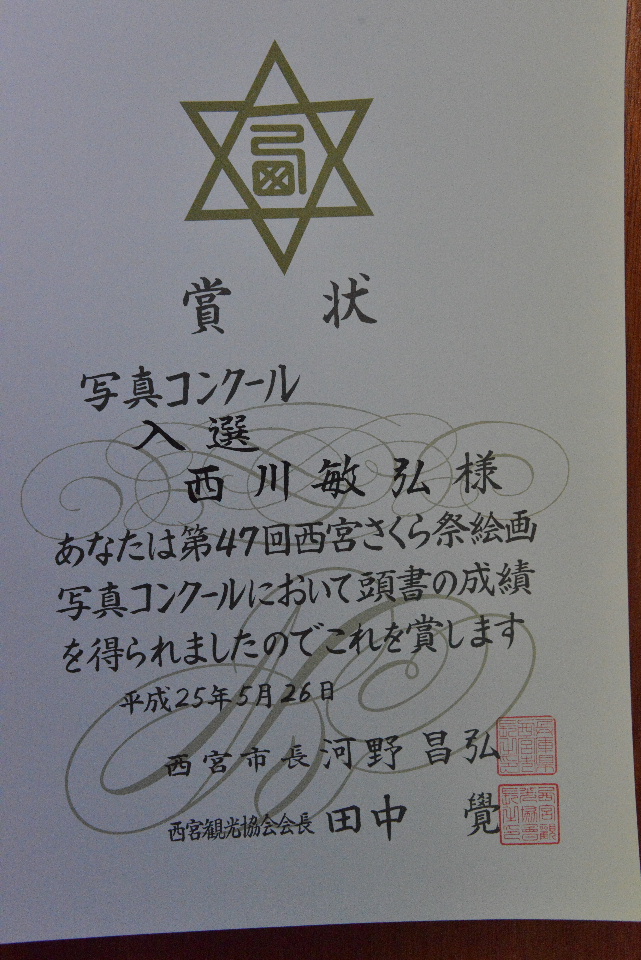 賞状
写真コンクール
入選
西川敏弘様
あなたは第47回西宮さくら祭絵画
写真コンクールにおいて頭書の成績
を得られましたのでこれを賞します
平成25年5月26日
西宮市長河野昌弘
西宮観光協会会長田中覺